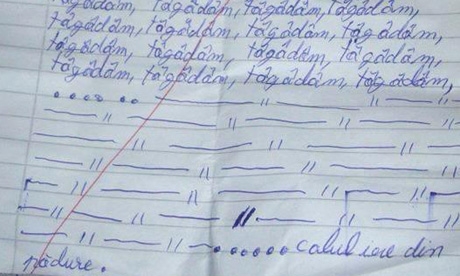 tăgădâm, tăgădâm, tăgădâm, tăgădâm,
tăgădâm, tăgădâm, tăgădâm, tăgădâm,
tăgădâm, tăgădâm, tăgădâm, tăgădâm,
tăgădâm, tăgădâm, tăgădâm, tăgădâm,
...... —— // —— // ——
—— // —— // —— // ——
—— // —— // —— // —— //
—— // —— // —— // ——
—— // —— // —— // ——
— // —— // —— // —— // —
—— // —— // —— ...... calul iese din
pădure.